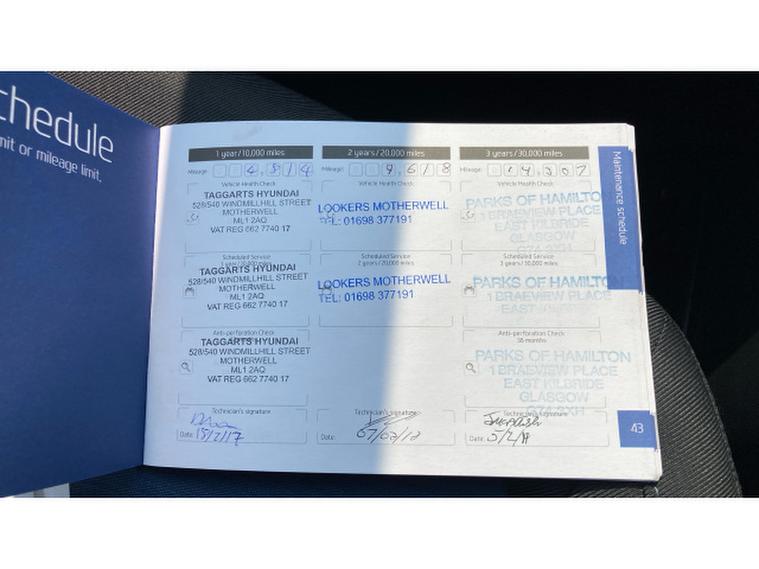 chedule
mit or mileage limit.
1 year/10,000 miles
Mileage:
4,814
Vehicle Health Check
TAGGARTS HYUNDAI
528/540 WINDMILLHILL STREET
MOTHERWELL
ML1 2AQ
VAT REG 662 7740 17
Scheduled Service
1 year/10,000 miles
TAGGARTS HYUNDAI
528/540 WINDMILLHILL STREET
MOTHERWELL
ML1 2AQ
VAT REG 662 7740 17
Anti-perforation Check
TAGGARTS HYUNDAI
528/540 WINDMILLHILL STREET
MOTHERWELL
ML1 2AQ
VAT REG 662 7740 17
Technician's signature
Date: 15/2/17
2 years/20,000 miles
Mileage:
9,618
Vehicle Health Check
LOOKERS MOTHERWELL
TEL: 01698 377191
Scheduled Service
2 years/20,000 miles
LOOKERS MOTHERWELL
TEL: 01698 377191
Technician's signature
Date:
3 years/30,000 miles
Mileage:
14,307
Vehicle Health Check
PARKS OF HAMILTO
1 BRAEVIEW PLACE
EAST KILBRIDE
GLASGOW
G74 3XH
Scheduled Service
3 years/30,000 miles
PARKS OF HAMILTON
1 BRAEVIEW PLACE
EAST KILBRIDE
Anti-perforation Check
36 months
PARKS OF HAMILTON
1 BRAEVIEW PLACE
EAST KILBRIDE
GLASGOW
G74 3XH
Technician's signature
Date:
Maintenance schedule
43